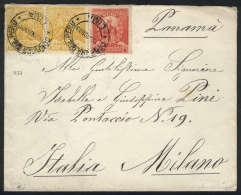 Panamá
Alle Gentilissime Signorine
Isabella e Giuseppina Pini
Via Pontaccio N. 19.
Italia Milano